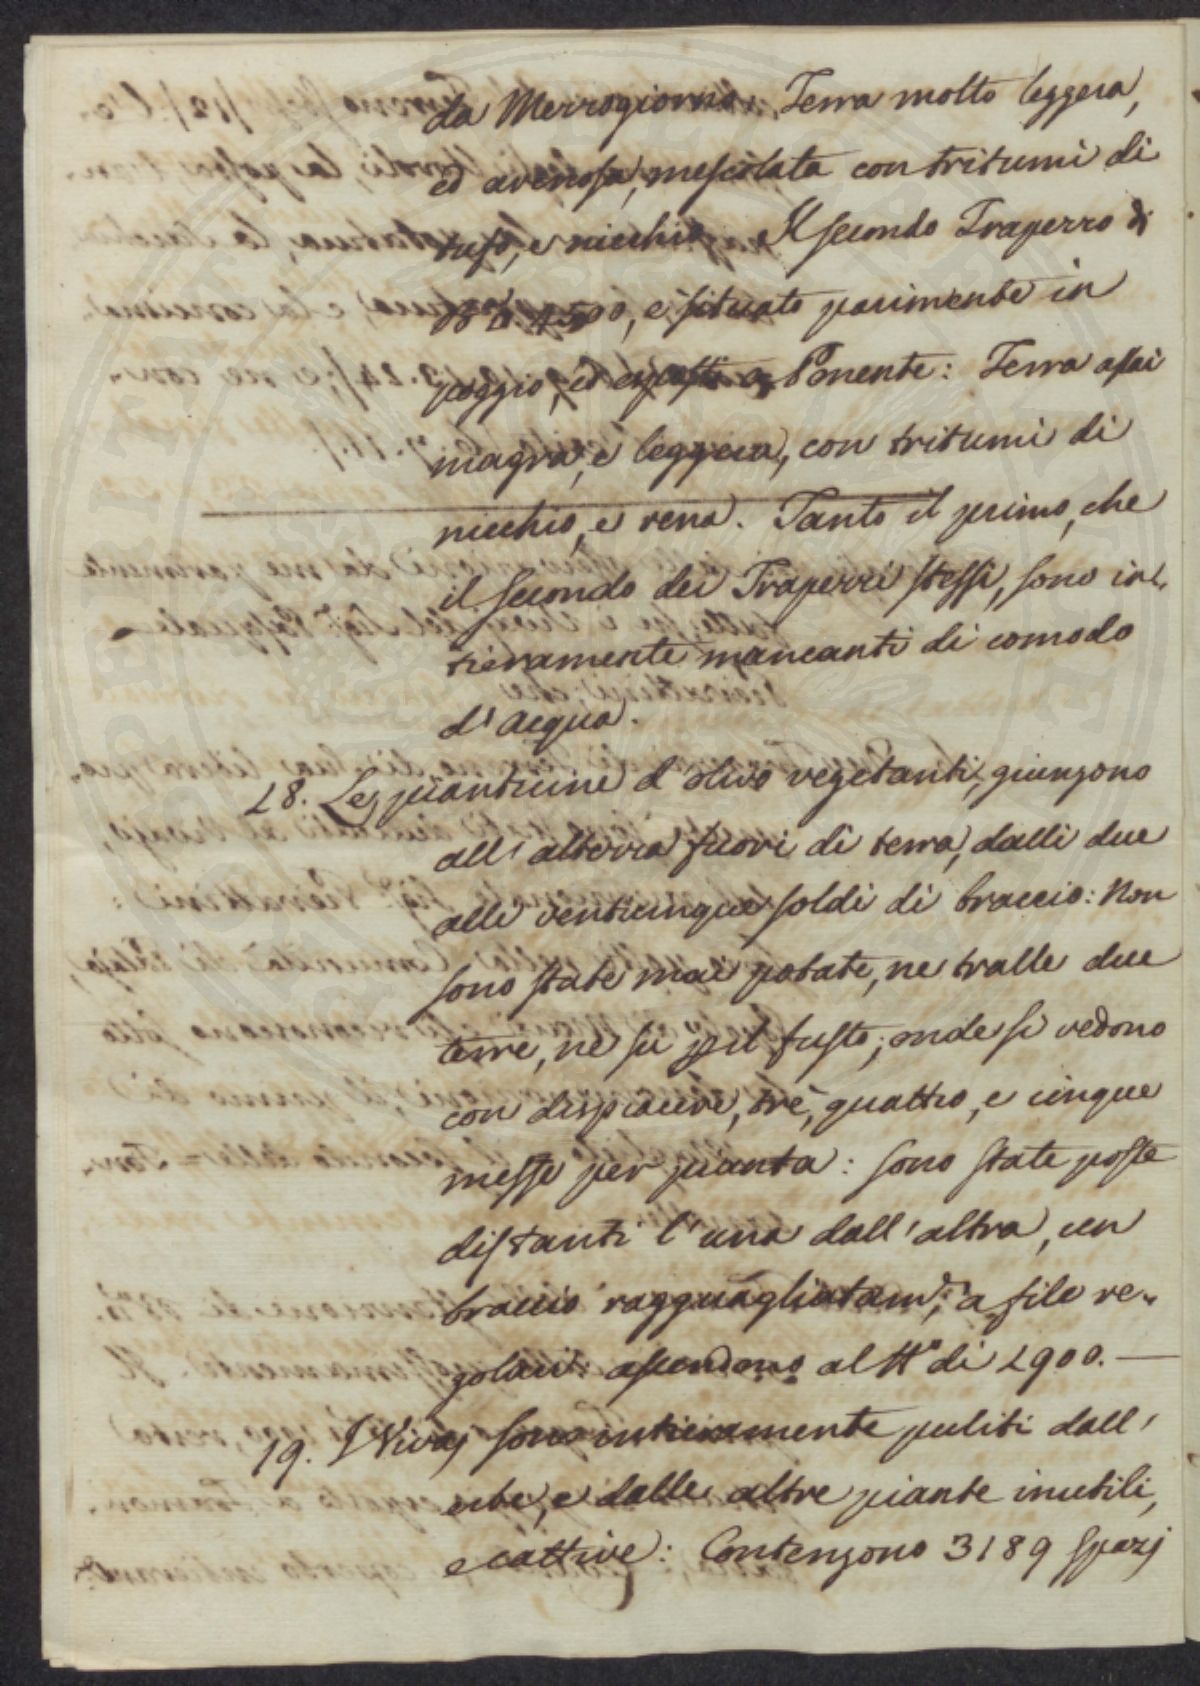 da Mezzogiorno. Terra molto leggera,
ed arenosa, mescolata con tritumi di
tufo, e nicchio. Il secondo Trapezzo di
B.ª 4500, e situato parimente in
poggio, ed esposto a Ponente: Terra assai
magra, e leggera, con tritumi di
nicchio, e rena. Tanto il primo, che
il secondo dei Trapezzi stessi, sono in-
tieramente mancanti di comodo
d'acqua.
18. Le pianticine d'olivo vegetanti, giungono
all'altezza fuori di terra, dalli due
alli venticinque soldi di braccio: Non
sono state mai potate, ne tralle due
terre, ne su pel fusto; onde si vedono
con dispiacere, trè, quattro, e cinque
messe per pianta: sono state poste
distanti l'una dall'altra, un
braccio ragguagliatam.e, a file re-
golari: ascendono al N.º di 1900. —
19. I Vivaj sono intieramente puliti dall'
erbe, e dalle altre piante inutili,
e cattive: Contengono 3189 spazj